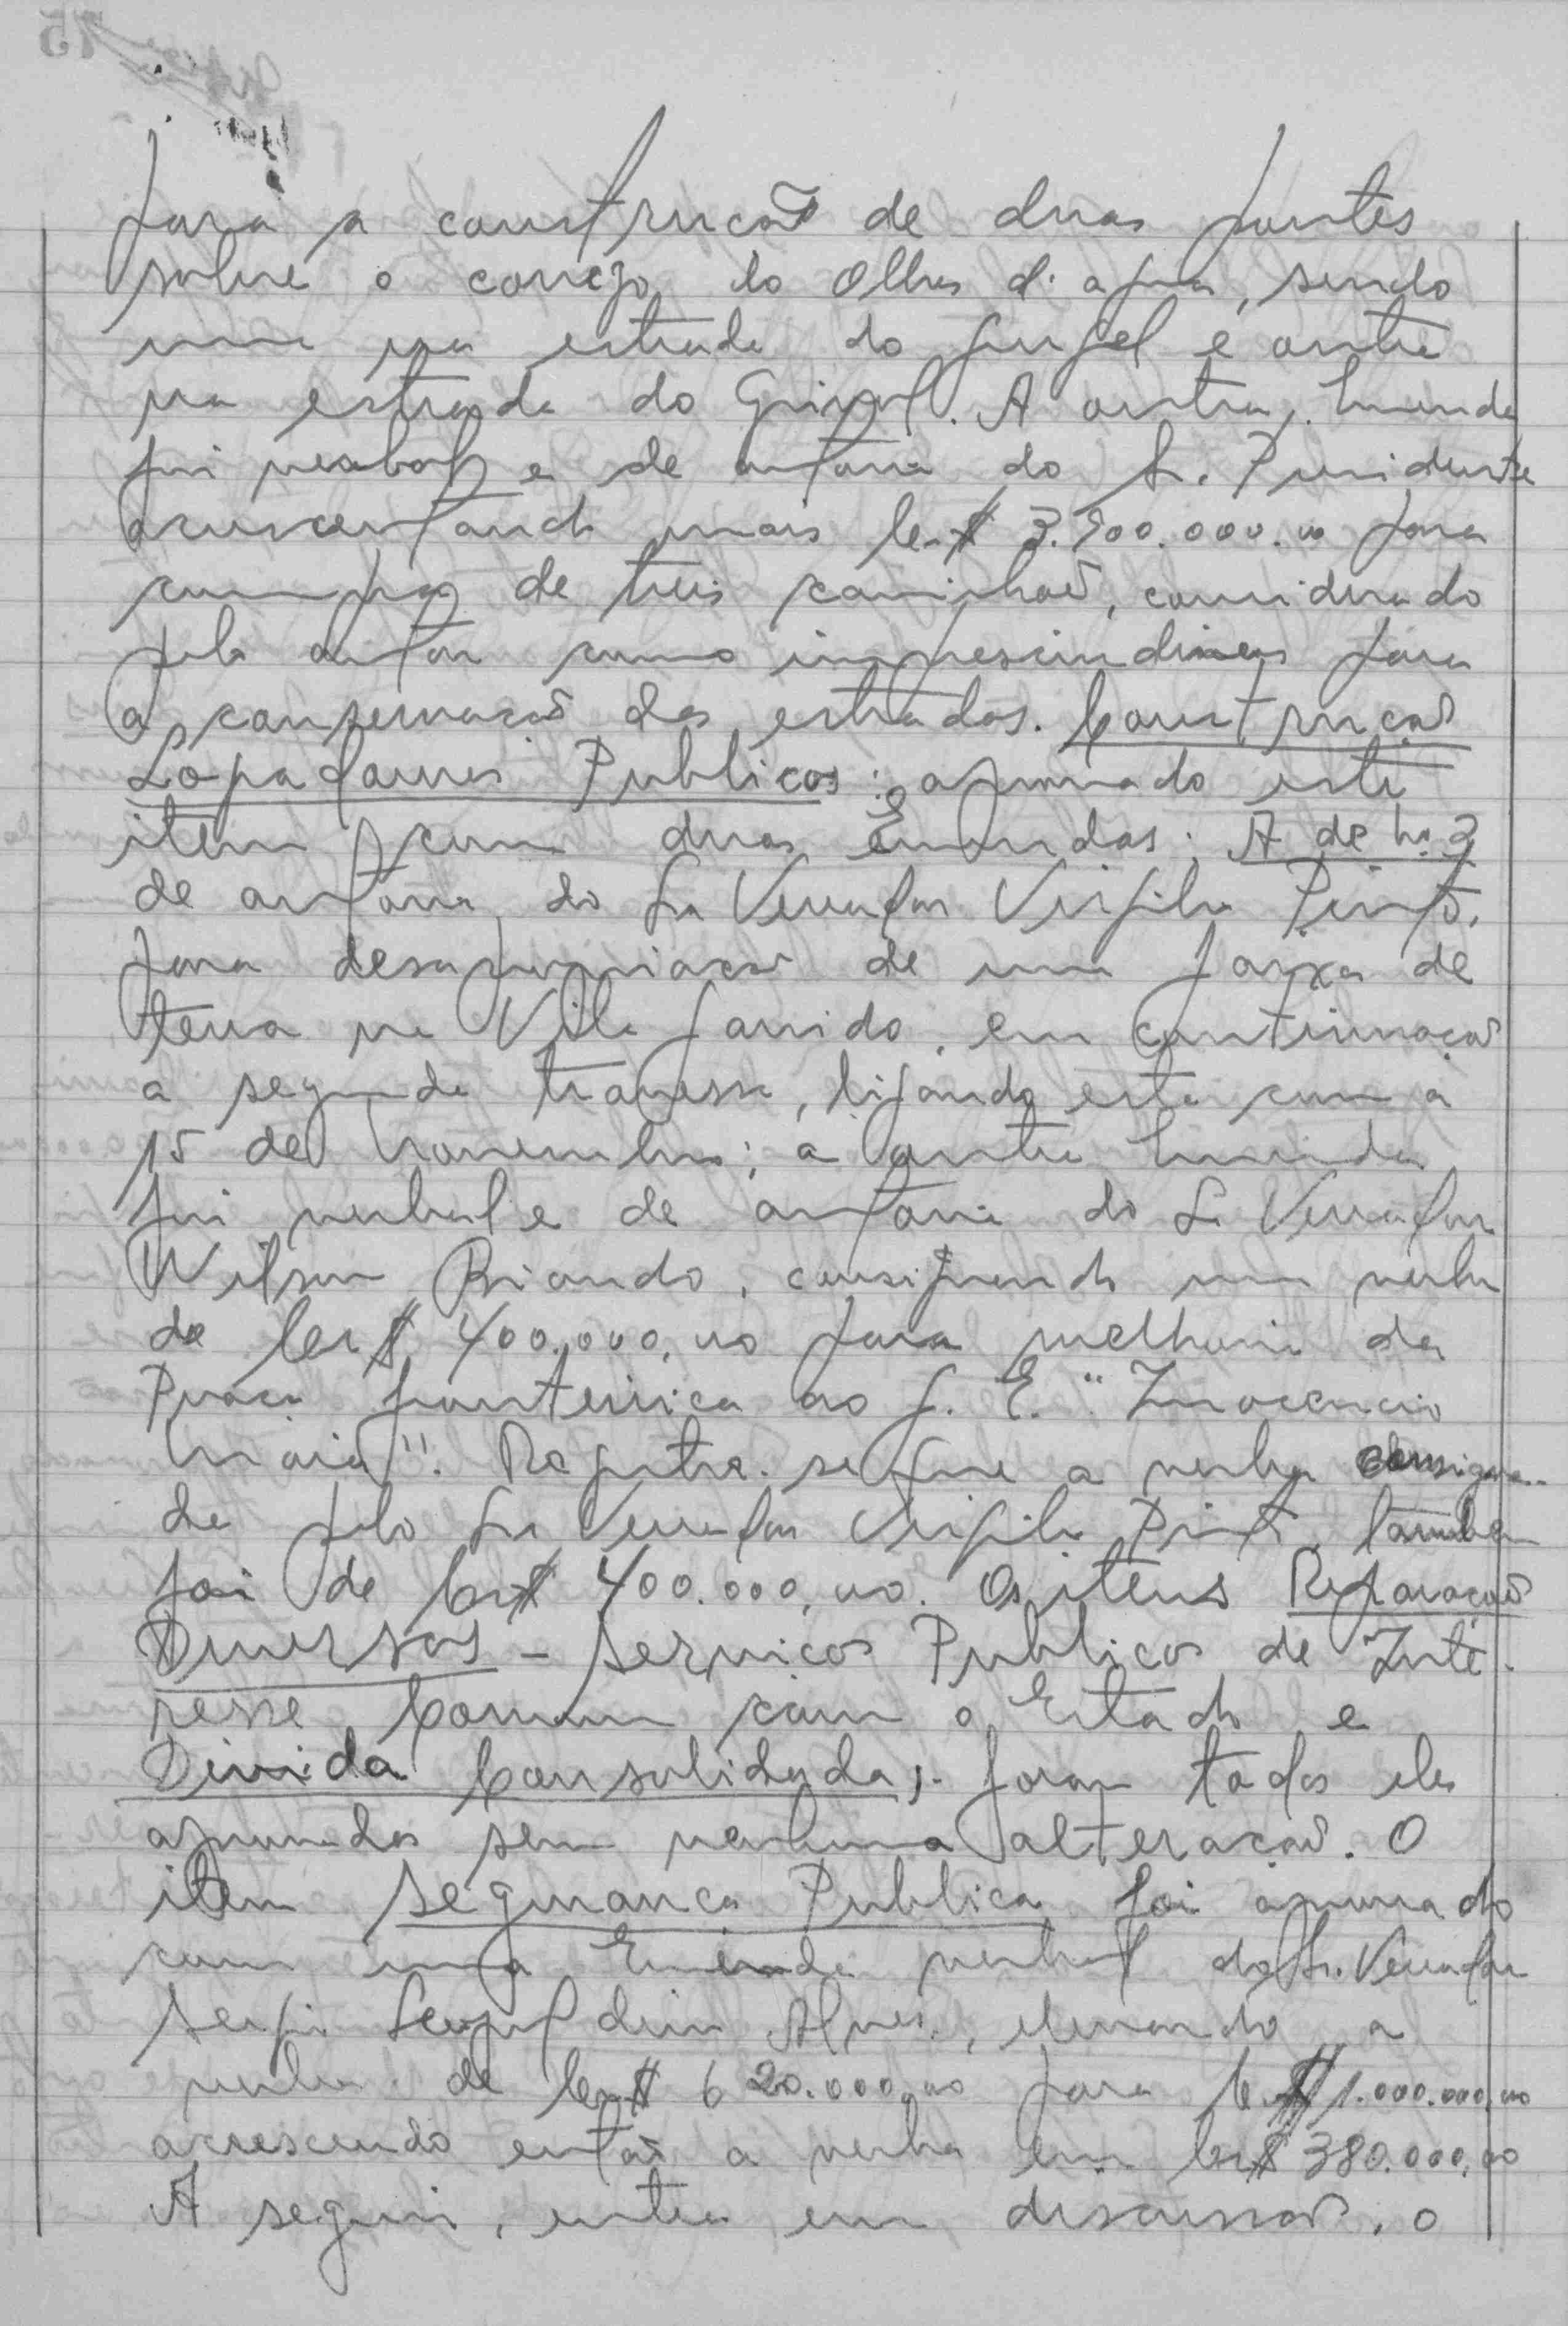 para a construção de duas pontes
sobre o corrego do Olhos d'agua, sendo
uma na estrada do e outra
na estrada do A outra, Emenda
foi verbal e de autoria do Sr. Presidente
acrescentando mais Cr$ 3.900.000.00 para
compra de tres caminhoẽs, considerado
pelo autor como imprescindiveis para
a conservação das estradas. Construção
Logradouros Publicos: aprovado este
item com duas Emendas: A de nº 2
de autoria do Sr Vereador Virgilio Pinto,
para desapropriação de uma faixa de
terra na Vila Garrido, em continuação
a segunda travessa, ligando esta com a
15 de Novembro; a outra Emenda
foi verbal e de autoria do Sr Vereador
Wilson consignando uma verba
de Cr$ 400.000,00 para melhoria da
Praça fronteiriça ao G. E. "Inocencio
Maia". Registra-se que a verba consigna-
da pelo Sr Vereador Virgilio Pinto, tambem
foi de Cr$ 400.000,00. Os itens Reparação
Diversos - Serviços Publicos de Inte-
resse Comum com o Estado e
Divida Consolidada; foram todos eles
aprovados sem nenhuma alteração. O
item Segurança Publica foi aprovado
com uma Emenda verbal do Sr. Vereador
Sergio Alves, elevando a
verba de Cr$ 620.000,00 para Cr$ 1.000.000,00
acrescendo então a verba em Cr$ 380.000,00
A seguir, entra em discussão, o
75